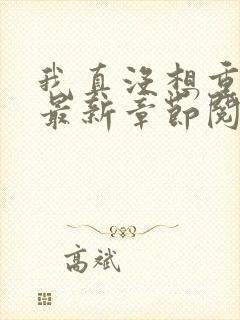 我真没想重
最新章节阅
高斌